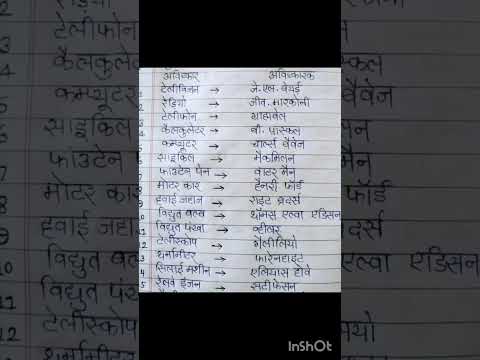 अविष्कार अविष्कारक
1 टेलीविजन → जे. एल. बेयर्ड
2 रेडियो → जीव. मारकोनी
3 टेलीफोन → ग्राहमबेल
4 कैलकुलेटर → बी. पास्कल
5 कम्प्यूटर → चार्ल्स बैवेज
6 साइकिल → मैकमिलन
7 फाउटेन पैन → वाटर मैन
8 मोटर कार → हैनरी फोर्ड
9 हवाई जहाज → राइट ब्रदर्स
10 विद्युत बल्ब → थॉमस एल्वा एडिसन
11 विद्युत पंखा → व्हीलर
12 टेलीस्कोप → गैलीलियो
3 थर्मामीटर → फारेनहाइट
4 सिलाई मशीन → एलियास होवे
5 रेलवे इंजन → सटीफेसन
InShOt